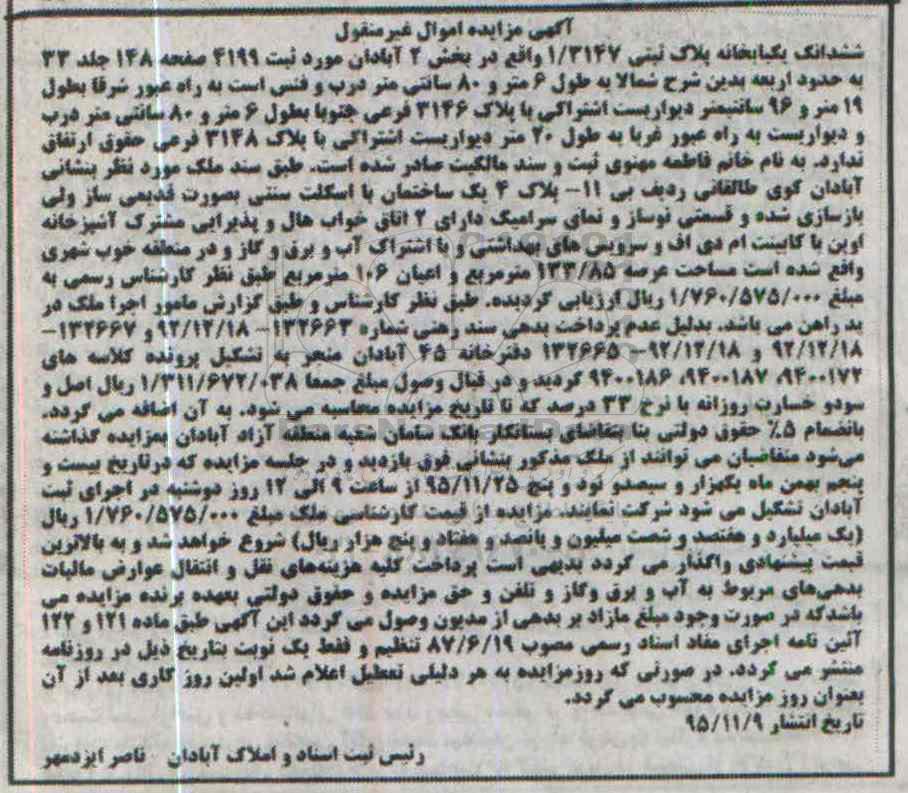 آگهی مزایده اموال غیرمنقول
ششدانگ یکبابخانه پلاک ثبتی ۱/۳۱۴۷ واقع در بخش ۲ آبادان مورد ثبت ۴۱۹۹ صفحه ۱۴۸ جلد ۳۳
به حدود اربعه بدین شرح شمالا به طول ۶ متر و ۸۰ سانتی متر درب و فنس است به راه عبور شرقا بطول
۱۹ متر و ۹۶ سانتیمتر دیواریست اشتراکی با پلاک ۳۱۴۶ فرعی جنوبا بطول ۶ متر و ۸۰ سانتی متر درب
و دیواریست به راه عبور غربا به طول ۲۰ متر دیواریست اشتراکی با پلاک ۳۱۴۸ فرعی حقوق ارتفاق
ندارد. به نام خانم فاطمه مهنوی ثبت و سند مالکیت صادر شده است. طبق سند ملک مورد نظر بنشانی
آبادان کوی طالقانی ردیف بی ۱۱- پلاک ۴ یک ساختمان با اسکلت سنتی بصورت قدیمی ساز ولی
بازسازی شده و قسمتی نوساز و نمای سرامیک دارای ۲ اتاق خواب هال و پذیرایی مشترک آشپزخانه
اوپن با کابینت ام دی اف و سرویس های بهداشتی و با اشتراک آب و برق و گاز و در منطقه خوب شهری
واقع شده است مساحت عرصه ۱۳۳/۸۵ مترمربع و اعیان ۱۰۶ مترمربع طبق نظر کارشناس رسمی به
مبلغ ۱/۷۶۰/۵۷۵/۰۰۰ ریال ارزیابی گردیده. طبق نظر کارشناس و طبق گزارش مامور اجرا ملک در
ید راهن می باشد. بدلیل عدم پرداخت بدهی سند رهنی شماره ۱۳۲۶۶۳- ۹۲/۱۲/۱۸ و ۱۳۲۶۶۷-
۹۲/۱۲/۱۸ و ۹۲/۱۲/۱۸- ۱۳۲۶۶۵ دفترخانه ۴۵ آبادان منجر به تشکیل پرونده کلاسه های
۹۴۰۰۱۷۲، ۹۴۰۰۱۸۷، ۹۴۰۰۱۸۶ گردید و در قبال وصول مبلغ جمعا ۱/۳۱۱/۶۷۲/۰۳۸ ریال اصل و
سودو خسارت روزانه با نرخ ۳۳ درصد که تا تاریخ مزایده محاسبه می شود. به آن اضافه می گردد.
بانضمام ۵٪ حقوق دولتی بنا بتقاضای بستانکار بانک سامان شعبه منطقه آزاد آبادان بمزایده گذاشته
میشود متقاضیان می توانند از ملک مذکور بنشانی فوق بازدید و در جلسه مزایده که درتاریخ بیست و
پنجم بهمن ماه یکهزار و سیصدو نود و پنج ۹۵/۱۱/۲۵ از ساعت ۹ الی ۱۲ روز دوشنبه در اجرای ثبت
آبادان تشکیل می شود شرکت نمایند. مزایده از قیمت کارشناسی ملک مبلغ ۱/۷۶۰/۵۷۵/۰۰۰ ریال
(یک میلیارد و هفتصد و شصت میلیون و پانصد و هفتاد و پنج هزار ریال) شروع خواهد شد و به بالاترین
قیمت پیشنهادی واگذار می گردد بدیهی است پرداخت کلیه هزینه‌های نقل و انتقال عوارض مالیات
بدهی‌های مربوط به آب و برق وگاز و تلفن و حق مزایده و حقوق دولتی بعهده برنده مزایده می
باشدکه در صورت وجود مبلغ مازاد بر بدهی از مدیون وصول می گردد این آگهی طبق ماده ۱۲۱ و ۱۲۲
آئین نامه اجرای مفاد اسناد رسمی مصوب ۸۷/۶/۱۹ تنظیم و فقط یک نوبت بتاریخ ذیل در روزنامه
منتشر می گردد. در صورتی که روزمزایده به هر دلیلی تعطیل اعلام شد اولین روز کاری بعد از آن
بعنوان روز مزایده محسوب می گردد.
تاریخ انتشار ۹۵/۱۱/۹
رئیس ثبت اسناد و املاک آبادان ناصر ایزدمهر